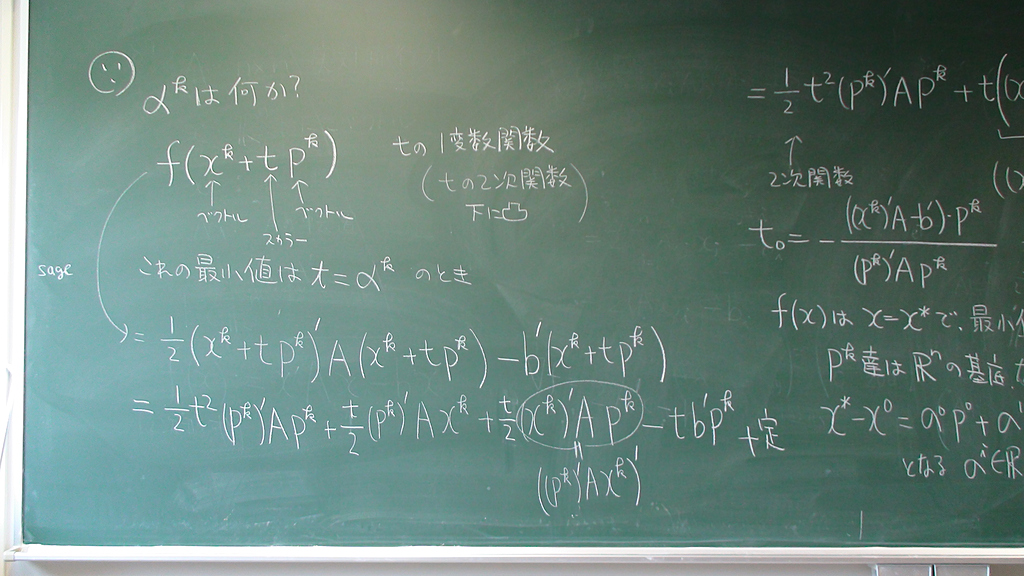 α^k は何か?
f(x^k + t p^k)
ベクトル スカラー ベクトル
tの1変数関数
(tの2次関数
下に凸)
sage
これの最小値は t = α^k のとき
= 1/2 (x^k + t p^k)' A (x^k + t p^k) - b'(x^k + t p^k)
= 1/2 t² (p^k)' A p^k + t/2 (p^k)' A x^k + t/2 (x^k)' A p^k - t b' p^k + 定
((p^k)' A x^k)'
= 1/2 t² (p^k)' A p^k + t(
2次関数
t₀ = - ((x^k)' A - b')·p^k / (p^k)' A p^k
f(x) は x = x* で、最小
p^k達は ℝ^n の基底
x* - x⁰ = a⁰ p⁰ + a¹
となる a^i ∈ ℝ